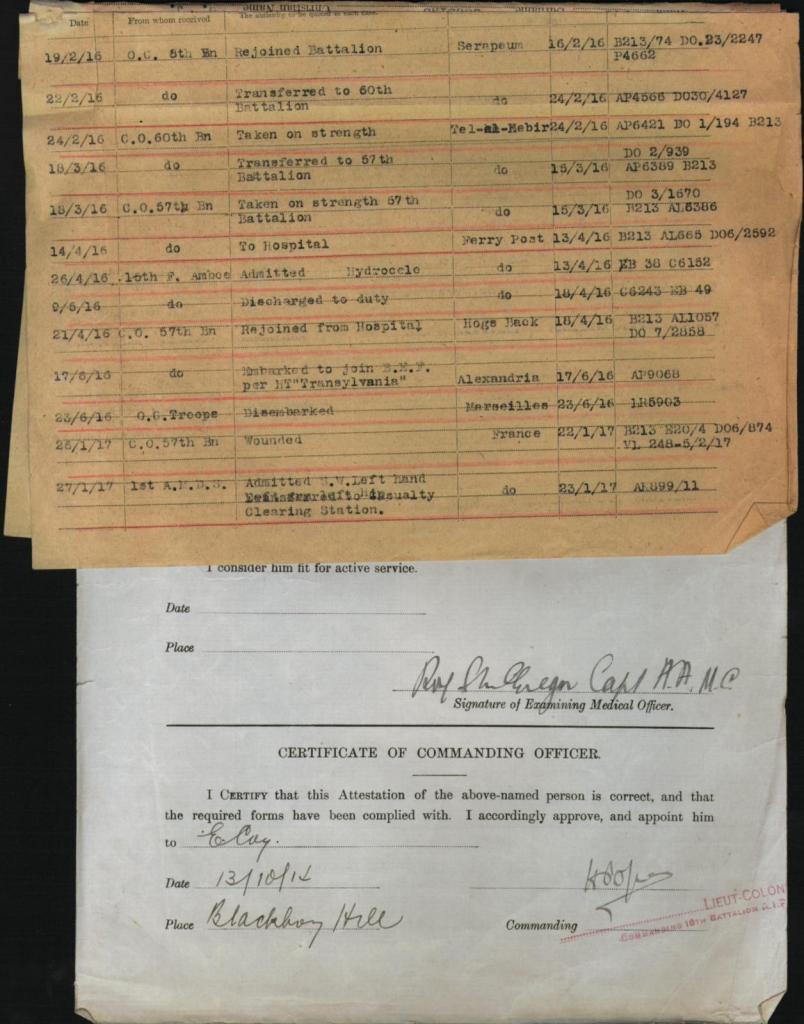 Date From whom received
19/2/16 O.C. 5th Bn Rejoined Battalion Serapeum 16/2/16 B213/74 DO.23/2247
P4662
22/2/16 do Transferred to 60th do 24/2/16 AP4566 DO30/4127
Battalion
24/2/16 C.O.60th Bn Taken on strength Tel-el-Kebir 24/2/16 AP6421 DO 1/194 B213
18/3/16 do Transferred to 57th do 15/3/16 DO 2/939
Battalion AP6389 B213
18/3/16 C.O.57th Bn Taken on strength 57th do 15/3/16 DO 3/1670
Battalion B213 AL6386
14/4/16 do To Hospital Ferry Post 13/4/16 B213 AL665 DO6/2592
26/4/16 15th F. Ambce Admitted Hydrocele do 13/4/16 EB 38 C6152
9/5/16 do Discharged to duty do 18/4/16 C6243 EB 49
21/4/16 C.O. 57th Bn Rejoined from Hospital Hogs Back 18/4/16 B213 AL1057
DO 7/2858
17/6/16 do Embarked to join B.E.F. Alexandria 17/6/16 AP9068
per HT"Transylvania"
23/6/16 O.C.Troops Disembarked Marseilles 23/6/16 LR5903
26/1/17 C.O.57th Bn Wounded France 22/1/17 B213 E20/4 DO6/874
VL 248-5/2/17
27/1/17 1st A.M.D.S. Admitted S.W.Left Hand do 23/1/17 AK899/11
to Casualty
Clearing Station.
I consider him fit for active service.
Date
Place
Capt A.A.M.C
Signature of Examining Medical Officer.
CERTIFICATE OF COMMANDING OFFICER.
I CERTIFY that this Attestation of the above-named person is correct, and that
the required forms have been complied with. I accordingly approve, and appoint him
to E Coy.
Date 13/10/14
LIEUT-COLON
Place Blackboy Hill Commanding
COMMANDING 16TH BATTALION A.I.F